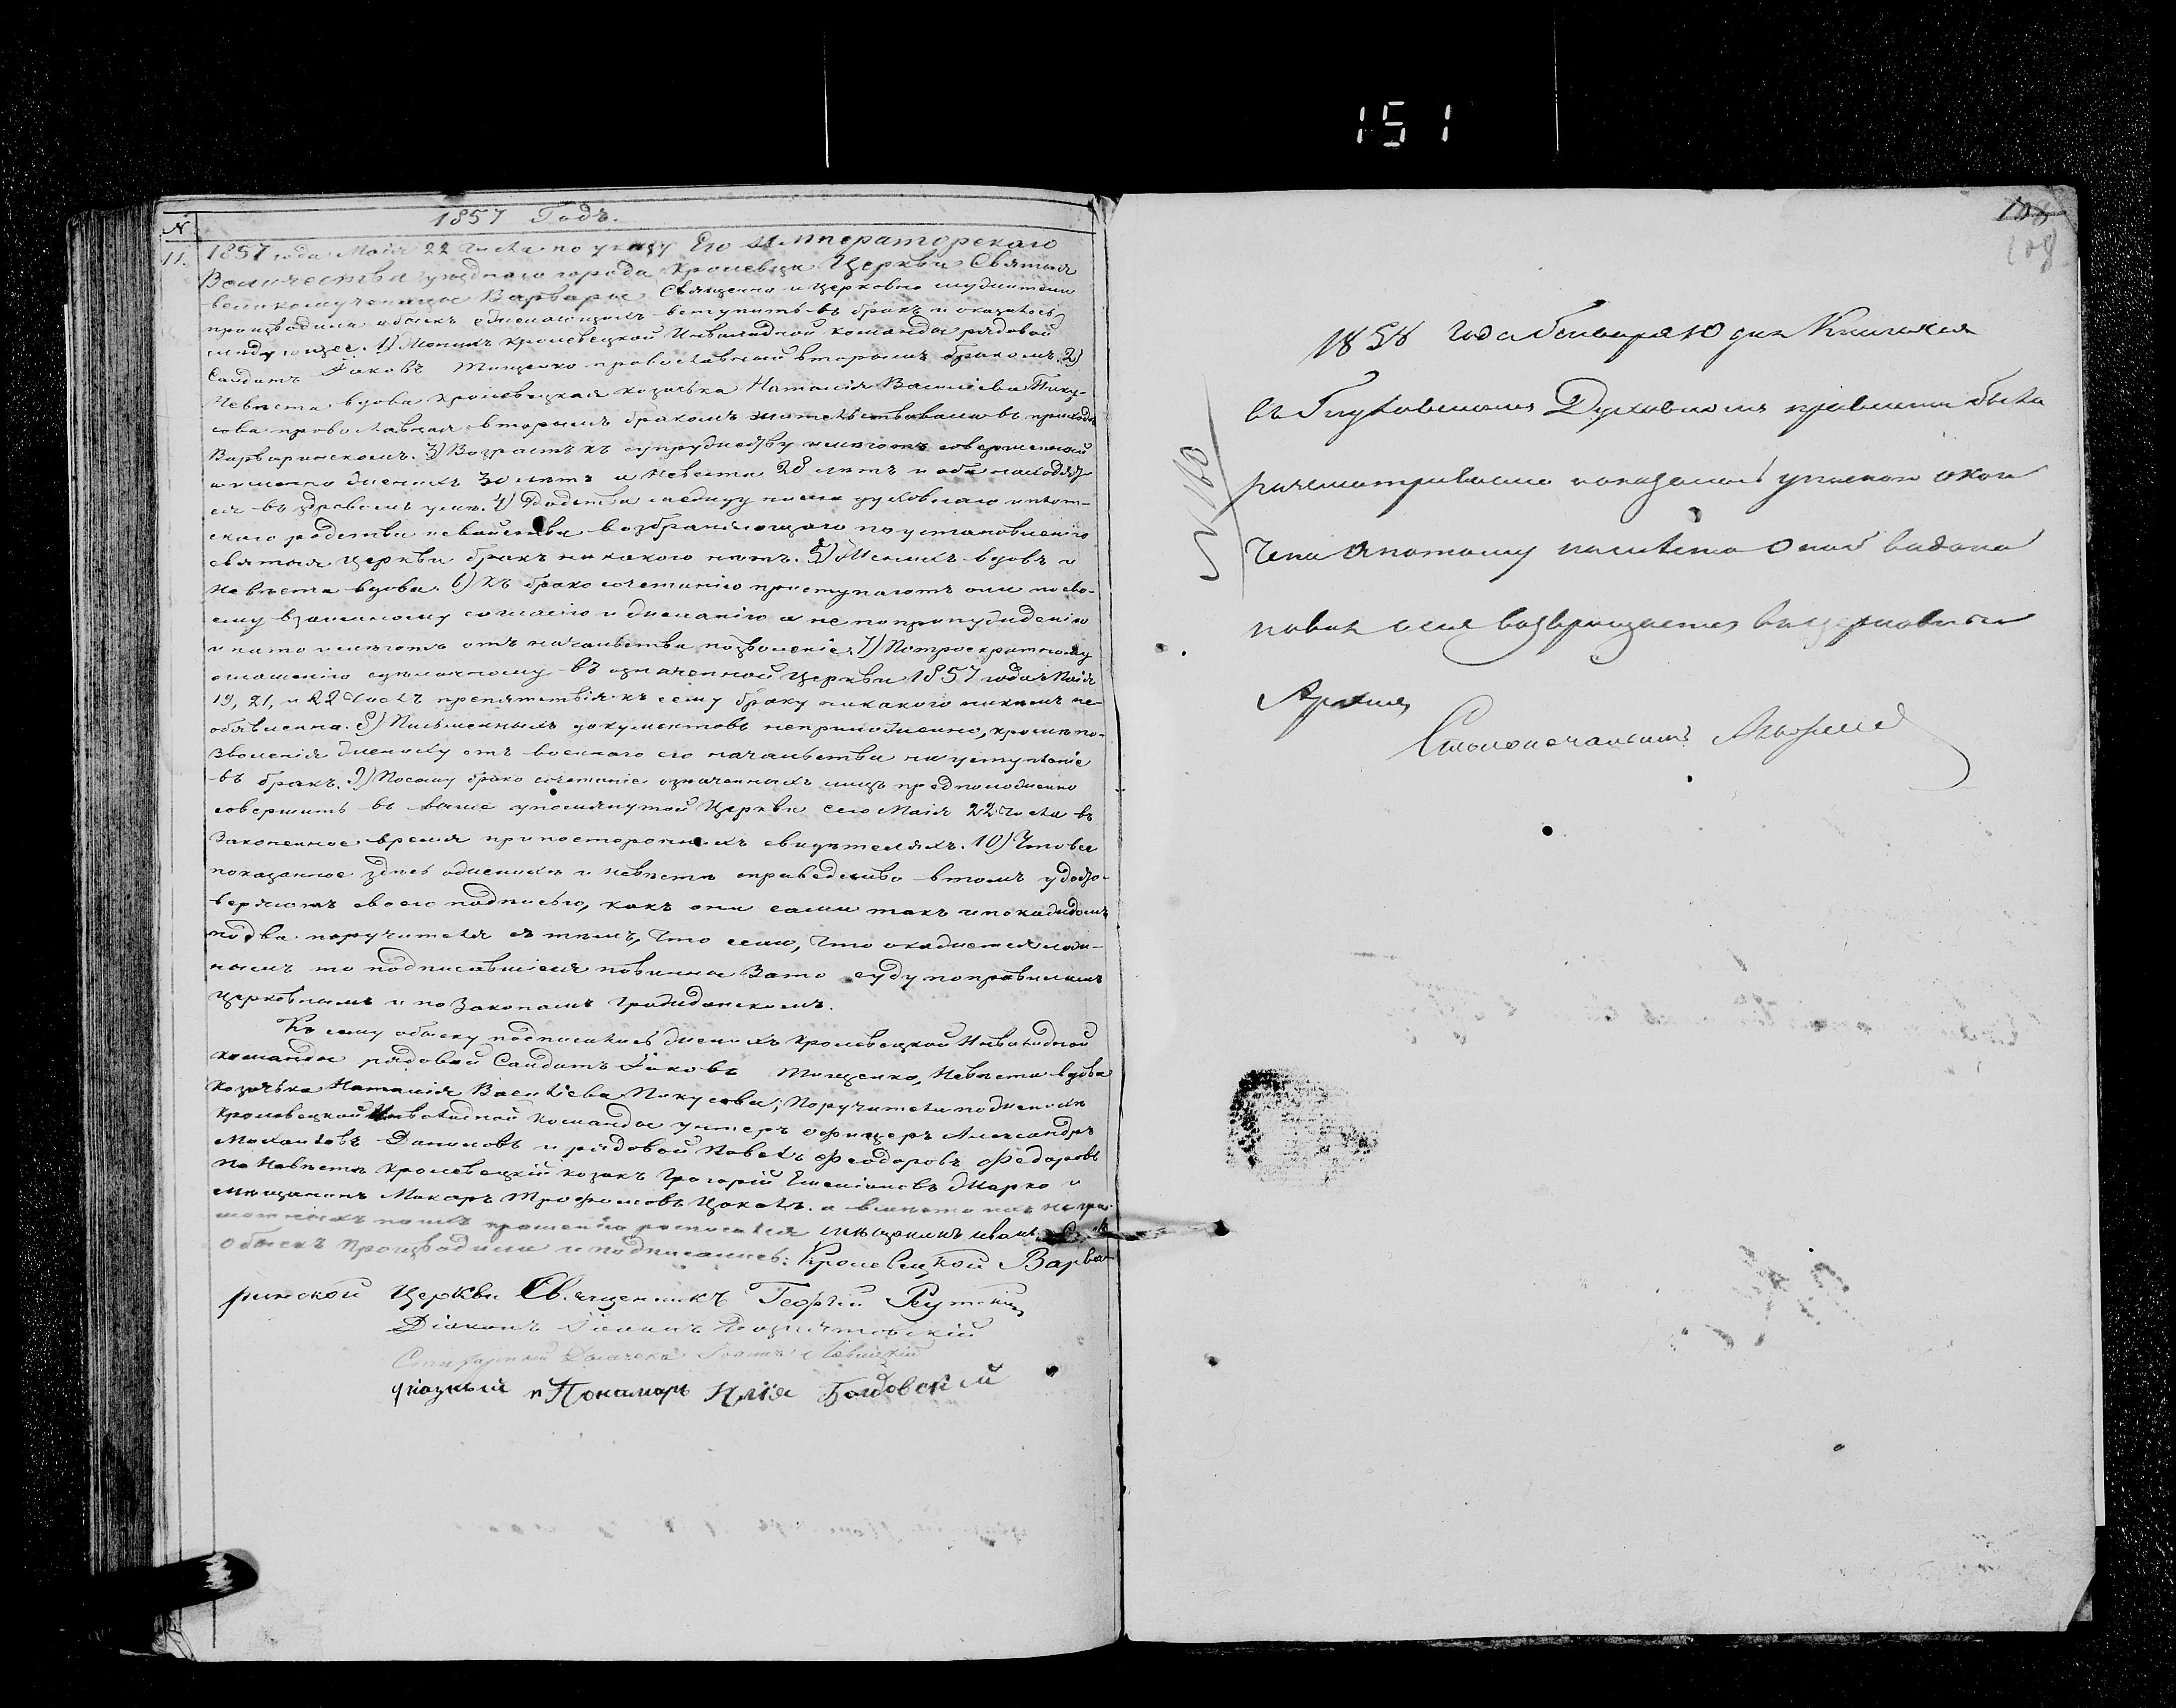 151
№
1857 Годъ.
11.
1857 года Маія 22 числа по указу Его Императорскаго
Величества уѣзднаго города Кролевца Церкви Святыя
великомученицы Варвары Священно и церковно служители
производили обыскъ о желающихъ вступить въ бракъ и оказалось
слѣдующее. 1) Женихъ кролевецкой Инвалидной команды рядовой
Салдатъ Іаковъ Тищенко православный вторымъ бракомъ. 2)
Невѣста вдова кролевецкая козачька Наталія Василіева Пику-
сова православная вторымъ бракомъ жительствовали въ приходѣ
Варваринскомъ. 3) Возрастъ къ супружеству имѣютъ совершенный
а именно женихъ 30 лѣтъ а Невеста 28 лѣтъ и оба находят-
ся въ здравомъ умѣ. 4) Родства между ними духовнаго и плот-
скаго родства и свойства возбраняющаго по установленію
святыя Церкви бракъ никакого нѣтъ. 5) Женихъ вдовъ и
Невѣста вдова. 6) Къ брако сочетанію приступаютъ они по сво-
ему взаимному согласію и желанію а не по принужденію
и на то имѣютъ отъ начальства позволеніе. 7) По троекратному
оглашенію сдѣланному въ означенной Церкви 1857 года Маія
19, 21, и 22 числъ препятствія къ сему браку никакого никѣмъ не-
объявленно. 8) Письменныхъ документовъ неприложенно, кромѣ по-
зволенія жениху отъ военнаго его начальства на уступленіе
въ бракъ. 9) Посему брако сочетаніе означенныхъ лицъ предположенно
совершить въ выше упомянутой Церкви сего Маія 22 числа въ
Законенное время при постороннихъ свидѣтеляхъ. 10) Что все
показанное здѣсь о женихѣ и невѣстѣ справедливо въ томъ удосто-
веряютъ своею подписью, какъ они сами такъ и по каждомъ
по два поручителя съ тѣмъ, что если, что окажется лож-
нымъ то подписавшіеся повинны За то суду по правиламъ
церковнымъ и по Законамъ Гражданскимъ.
Къ сему обыску подписались женихъ кролевецкой Инвалидной
команды рядовой Салдатъ Іаковъ Тищенко, Невѣста вдова
козачька Наталія Василіева Пикусова; Поручители по женихѣ
кролевецкой Инвалидной команды унтеръ офицеръ Александръ
Михаиловъ Даниловъ и рядовой Павелъ Феодоровъ Федоровъ
По Невѣстѣ кролевецкій козакъ Григорій Емеліановъ Жарко и
мѣщанинъ Макаръ Трофимовъ Цокалъ. а вместо ихъ негра-
мотныхъ по ихъ прошенію росписался мѣщанинъ Иванъ
Обыскъ Производили и подписались: Кролевецкой Варва-
ринской Церкви Священникъ Георгій
Діаконъ Іоаннъ
Іоаннъ Левицкій
указный Понамарь Илія
108
№ 110
1858 года Генваря 10 дня Книга сія
въ Глуховскомъ Духовномъ правленіи была
разсматриваема
чена а потому вместо оной видана
новая а сія возвращается въ церковный
Архивъ
Столоначальникъ